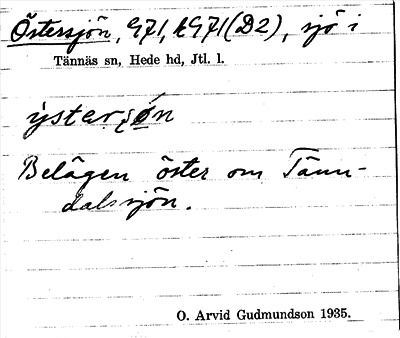 Östersjön, 971, k971 (D2), sjö i
Tännäs sn, Hede hd, Jtl. l.
Belägen öster om Tänn-
dalssjön.
O. Arvid Gudmundson 1935.